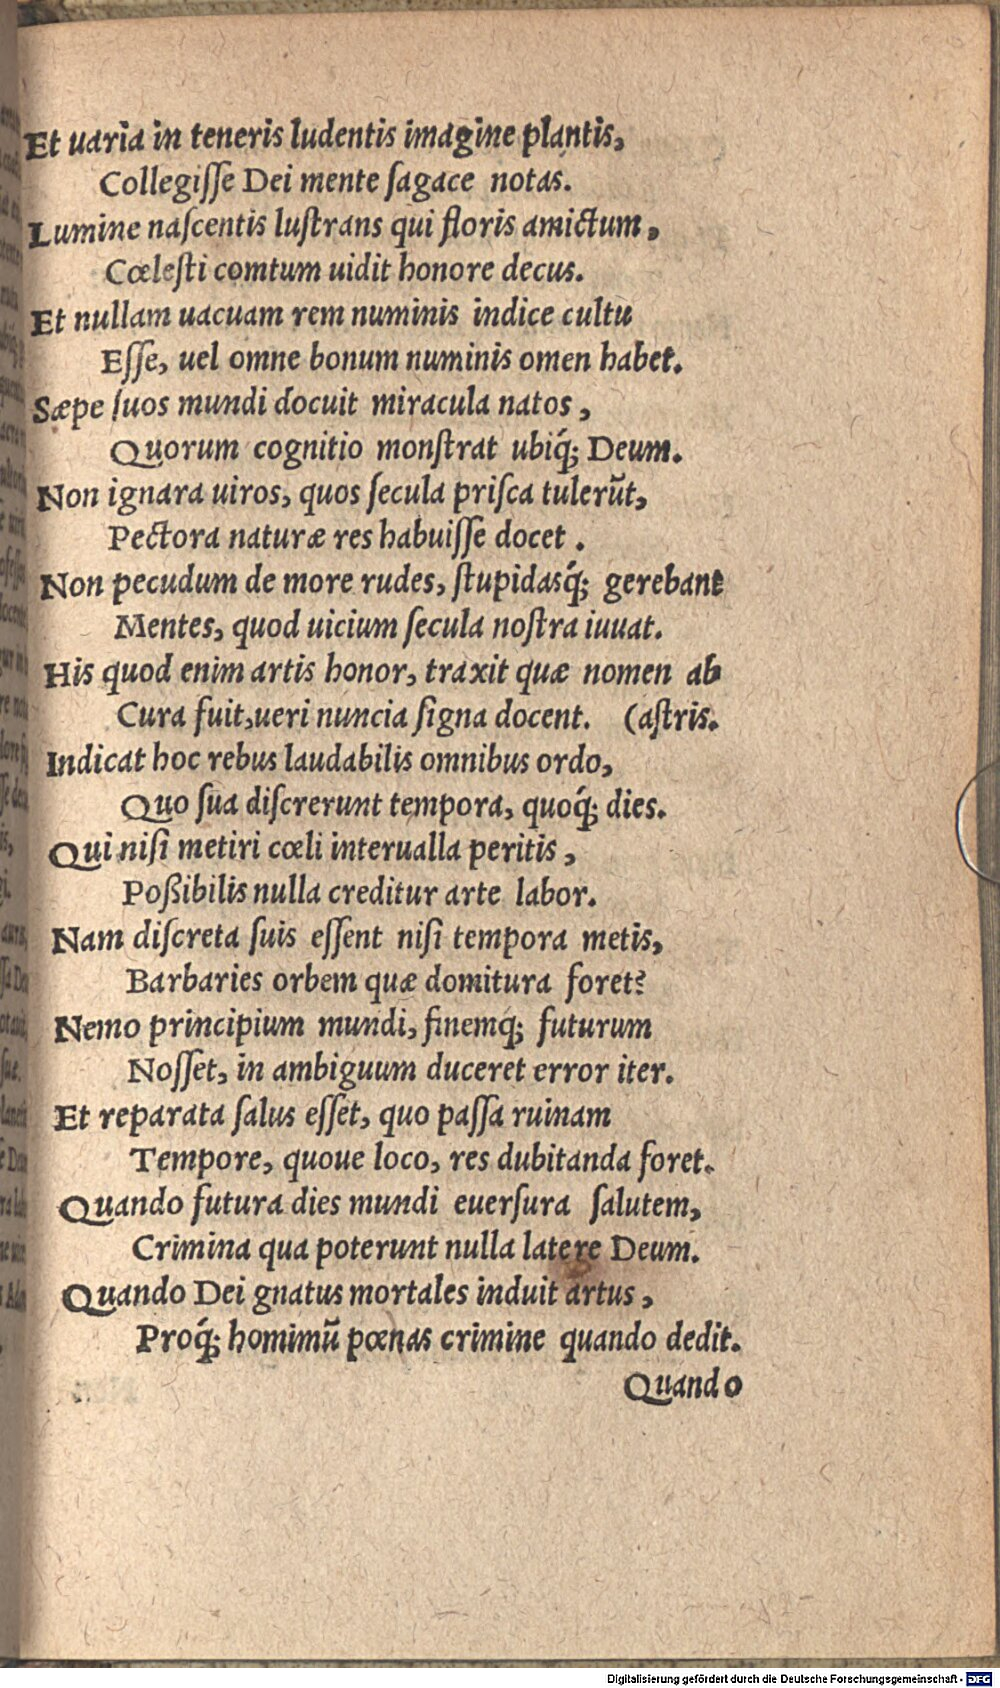 Et uaria in teneris ludentis imagine plantis,
Collegiſſe Dei mente ſagace notas.
Lumine naſcentis luſtrans qui floris amictum,
Cœleſti comtum uidit honore decus.
Et nullam uacuam rem numinis indice cultu
Eſſe, uel omne bonum numinis omen habet.
Sæpe ſuos mundi docuit miracula natos,
Quorum cognitio monſtrat ubiq́; Deum.
Non ignara uiros, quos ſecula priſca tulerūt,
Pectora naturæ res habuiſſe docet.
Non pecudum de more rudes, ſtupidasq́; gerebant
Mentes, quod uicium ſecula noſtra iuuat.
His quod enim artis honor, traxit quæ nomen ab
Cura fuit, ueri nuncia ſigna docent. (aſtris.
Indicat hoc rebus laudabilis omnibus ordo,
Quo ſua diſcrerunt tempora, quoq́; dies.
Qui niſi metiri cœli interualla peritis,
Poßibilis nulla creditur arte labor.
Nam diſcreta ſuis eſſent niſi tempora metis,
Barbaries orbem quæ domitura foret?
Nemo principium mundi, finemq; futurum
Noſſet, in ambiguum duceret error iter.
Et reparata ſalus eſſet, quo paſſa ruinam
Tempore, quoue loco, res dubitanda foret.
Quando futura dies mundi euerſura ſalutem,
Crimina qua poterunt nulla latere Deum.
Quando Dei gnatus mortales induit artus,
Proq́; homimū pœnas crimine quando dedit.
Quando
Digitalisierung gefördert durch die Deutsche Forschungsgemeinschaft - DFG